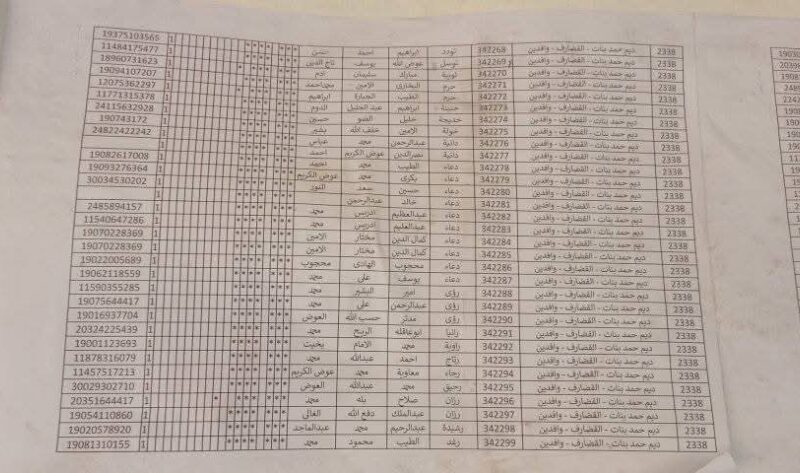 2338 ديم حمد بنات - القضارف - وافدين 342268 تودد ابراهيم احمد حسن *** **** 1 19375103565
2338 ديم حمد بنات - القضارف - وافدين 342269 توسل عوض الله يوسف تاج الدين *** **** 1 11484175477
2338 ديم حمد بنات - القضارف - وافدين 342270 توبة مبارك سليمان ادم *** **** 1 18960731623
2338 ديم حمد بنات - القضارف - وافدين 342271 حرم البخاري الامين محمداحمد *** **** 1 19094107207
2338 ديم حمد بنات - القضارف - وافدين 342272 حرم الطيب ابراهيم *** **** 1 12075362297
2338 ديم حمد بنات - القضارف - وافدين 342273 ابراهيم عبد الجليل *** **** 1 11771315378
2338 ديم حمد بنات - القضارف - وافدين 342274 خديجة خليل الضو حسين *** **** 1 24115632928
2338 ديم حمد بنات - القضارف - وافدين 342275 خولة الامين خلف الله بشير *** **** 1 190743172
2338 ديم حمد بنات - القضارف - وافدين 342276 دانية عبدالرحمن محمد عباس *** **** 1 24822422242
2338 ديم حمد بنات - القضارف - وافدين 342277 دانية نصرالدين عوض الكريم احمد *** **** 1
2338 ديم حمد بنات - القضارف - وافدين 342278 دعاء الطيب محمد احمد *** **** 1 19082617008
2338 ديم حمد بنات - القضارف - وافدين 342279 دعاء بكري محمد عوض الكريم *** **** 1 19093276364
2338 ديم حمد بنات - القضارف - وافدين 342280 دعاء حسين سعد النور *** **** 1 30034530202
2338 ديم حمد بنات - القضارف - وافدين 342281 دعاء خالد عبدالرحمن *** **** 1
2338 ديم حمد بنات - القضارف - وافدين 342282 دعاء عبدالعظيم ادريس محمد *** **** 1 2485894157
2338 ديم حمد بنات - القضارف - وافدين 342283 دعاء عبدالعليم ادريس محمد *** **** 1 11540647286
2338 ديم حمد بنات - القضارف - وافدين 342284 دعاء كمال الدين مختار الامين *** **** 1 19070228369
2338 ديم حمد بنات - القضارف - وافدين 342285 دعاء كمال الدين مختار الامين *** **** 1 19070228369
2338 ديم حمد بنات - القضارف - وافدين 342286 دعاء محجوب الهادي محجوب *** **** 1 19022005689
2338 ديم حمد بنات - القضارف - وافدين 342287 دعاء يوسف علي محمد *** **** 1 19062118559
2338 ديم حمد بنات - القضارف - وافدين 342288 رؤى امير البشير محمد *** **** 1 11590355285
2338 ديم حمد بنات - القضارف - وافدين 342289 رؤى عبدالرحمن علي محمد *** **** 1 19075644417
2338 ديم حمد بنات - القضارف - وافدين 342290 رؤى مدثر حسب الله العوض *** **** 1 19016937704
2338 ديم حمد بنات - القضارف - وافدين 342291 رانيا ابوعاقله الريح محمد *** **** 1 20324225439
2338 ديم حمد بنات - القضارف - وافدين 342292 راوية محمد الامام بخيت *** **** 1 19001123693
2338 ديم حمد بنات - القضارف - وافدين 342293 رتاج احمد عبدالله محمد *** **** 1 11878316079
2338 ديم حمد بنات - القضارف - وافدين 342294 رجاء معاوية محمد عوض الكريم *** **** 1 11457517213
2338 ديم حمد بنات - القضارف - وافدين 342295 رحيق محمد عبدالله العوض *** **** 1 30029302710
2338 ديم حمد بنات - القضارف - وافدين 342296 رزان صلاح بله محمد *** **** * 1 20351644417
2338 ديم حمد بنات - القضارف - وافدين 342297 رزان عبدالملك دفع الله الغالي *** **** 1 19054110860
2338 ديم حمد بنات - القضارف - وافدين 342298 رشيدة عبدالرحيم محمد عبدالماجد *** **** 1 19020578920
2338 ديم حمد بنات - القضارف - وافدين 342299 رغد الطيب محمود محمد *** **** 1 19081310155